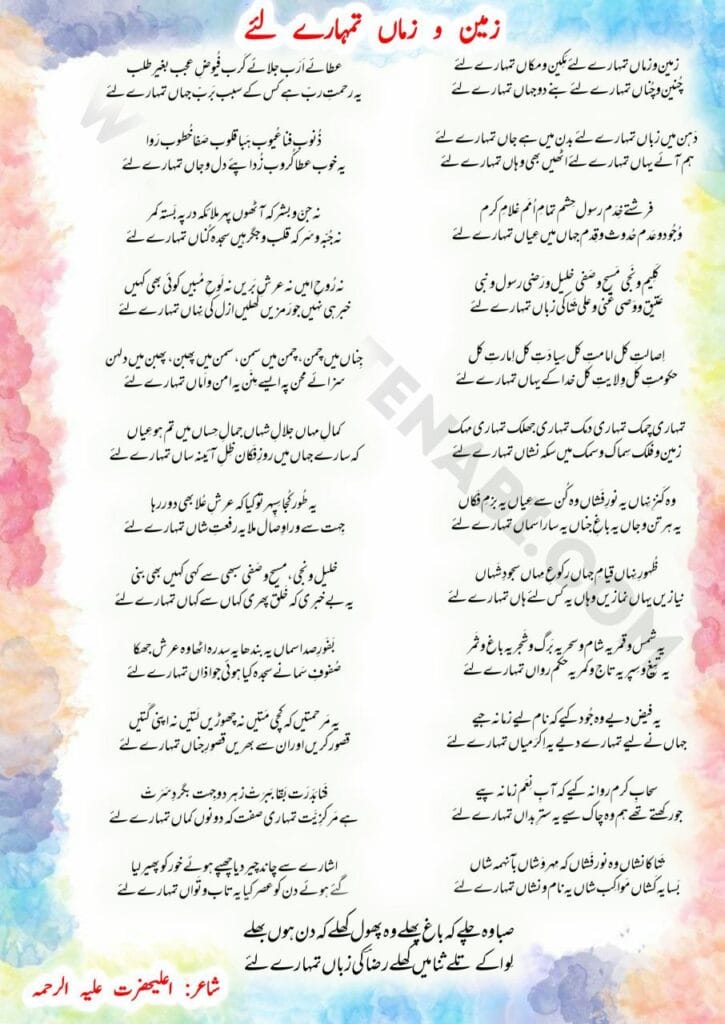 زمین و زماں تمہارے لئے
زمین و زماں تمہارے لئے مکین و مکاں تمہارے لئے
چُنین و چُناں تمہارے لئے بنے دو جہاں تمہارے لئے
دَہن میں زباں تمہارے لئے بدن میں ہے جاں تمہارے لئے
ہم آئے یہاں تمہارے لئے اٹھیں بھی وہاں تمہارے لئے
فرشتے خِدَم رسول حشم تمامِ اُمَم غلامِ کرم
وُجود و عدم حُدوث و قِدم جہاں میں عیاں تمہارے لئے
کلیم و نجی مسیح و صفی خلیل و رضی رسول و نبی
عتیق و وصی غنی و علی ثنا کی زباں تمہارے لئے
اِصالتِ کل امامتِ کل سیادتِ کل امارتِ کل
حکومتِ کل ولایتِ کل خدا کے یہاں تمہارے لئے
تمہاری چمک تمہاری دمک تمہاری جھلک تمہاری مہک
زمین و فلک سماک و سمک میں سکہ نشاں تمہارے لئے
وہ کنزِ نہاں یہ نورِ فشاں وہ کُن سے عیاں یہ بزمِ فکاں
یہ ہر تن و جاں یہ باغِ جناں یہ سارا سماں تمہارے لئے
ظہورِ نہاں قیامِ جہاں رکوعِ مہاں سجودِ شہاں
نیازیں یہاں نمازیں وہاں یہ کس لئے ہاں تمہارے لئے
یہ شمس و قمر یہ شام و سحر یہ برگ و شجر یہ باغ و ثمر
یہ تیغ و سپر یہ تاج و کمر یہ حکم رواں تمہارے لئے
یہ فیض دیے وہ جُود کیے کہ نام لیے زمانہ جیے
جہاں نے لیے تمہارے دیے یہ اِکرمیاں تمہارے لئے
سحابِ کرم روانہ کیے کہ آبِ نِعَم زمانہ پیے
جو رکھتے تھے ہم وہ چاک سیے یہ سترِ بداں تمہارے لئے
ثنا کا نشاں وہ نور فشاں کہ مہرِ وشاں بآنہمہ شاں
بسا یہ کشاں مواکب شاں یہ نام و نشاں تمہارے لئے
عطائے اَرَب جلائے کَرب فُیوضِ عجب بغیر طلب
یہ رحمتِ ربّ ہے کس کے سبب بَربِّ جہاں تمہارے لئے
ذُنوب فنا عُیوب ہَبا قلوب صَفا خُطوب رَوا
یہ خوب عطا کُروب زُدا پئے دل و جاں تمہارے لئے
نہ جِنّ و بشر کہ آٹھوں پہر ملائکہ در پہ بَستہ کمر
نہ جُبہ و سَر کہ قلب و جگر ہیں سجدہ کُناں تمہارے لئے
نہ رُوحِ امیں نہ عرشِ بَریں نہ لَوحِ مُبیں کوئی بھی کہیں
خبر ہی نہیں جو رَمزیں کُھلیں ازل کی نِہاں تمہارے لئے
جِناں میں چمن، چمن میں سمن، سمن میں پھبن، پھبن میں دلہن
سزائے محن پہ ایسے مِنَن یہ امن و اَماں تمہارے لئے
کمالِ مہاں جلالِ شہاں جمالِ حساں میں تم ہو عیاں
کہ سارے جہاں میں روزِ فکاں ظِلِ آئینہ ساں تمہارے لئے
یہ طُور کُجا سپہر تو کیا کہ عرشِ عُلا بھی دور رہا
جہت سے ورا وِصال ملا یہ رفعتِ شاں تمہارے لئے
خلیل و نجی، مسیح و صفی سبھی سے کہی کہیں بھی بنی
یہ بے خبری کہ خلق پھری کہاں سے کہاں تمہارے لئے
بَفَورِ صدا سماں یہ بندھا یہ سدرہ اٹھا وہ عرش جھکا
صُفوفِ سَما نے سجدہ کیا ہوئی جو اذاں تمہارے لئے
یہ مَرحمتیں کہ کچی مَتیں نہ چھوڑیں لَتیں نہ اپنی گَتیں
قصور کریں اور ان سے بھریں قصورِ جناں تمہارے لئے
فنا بَدَرت بَقا بَبَرَت زِ ہر دو جہت بگردِ سَرَت
ہے مَرکزِیَّت تمہاری صفت کہ دونوں کماں تمہارے لئے
اشارے سے چاند چیر دیا چھپے ہوئے خُور کو پھیر لیا
گئے ہوئے دن کو عصر کیا یہ تاب و تواں تمہارے لئے
صبا وہ چلے کہ باغ پھلے وہ پھول کھلے کہ دن ہوں بھلے
لِوا کے تلے ثنا میں کھلے رضا کی زباں تمہارے لئے
شاعر: اعلیحضرت علیہ الرحمہ